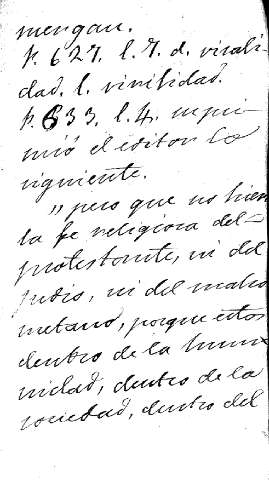 mengan.
p. 627. l. 7. d. virali-
dad. l. virilidad.
p. 633. l. 4. supri-
mió el editor lo
siguiente.
"pero que no hiera
la fe religiosa del
protestante, ni del
judio, ni del maho
metano, porque estos
dentro de la huma
nidad, dentro de la
sociedad, dentro del